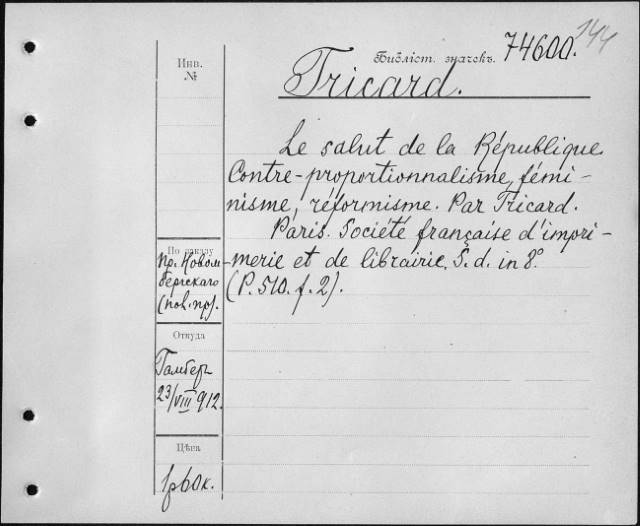 144
Библіот. значекъ. 74600.
Инв.
№
Tricard.
Le salut de la République
Contre-proportionnalisme, fémi-
nisme, réformisme. Par Tricard.
Paris. Société française d'impri-
merie et de librairie. S. d. in 8°.
(P. 510. f. 2).
По заказу
пр. Новом-
бергскаго
(пов. пр).
Откуда
Гамбер
23/VIII 912.
Цѣна
1р60к.